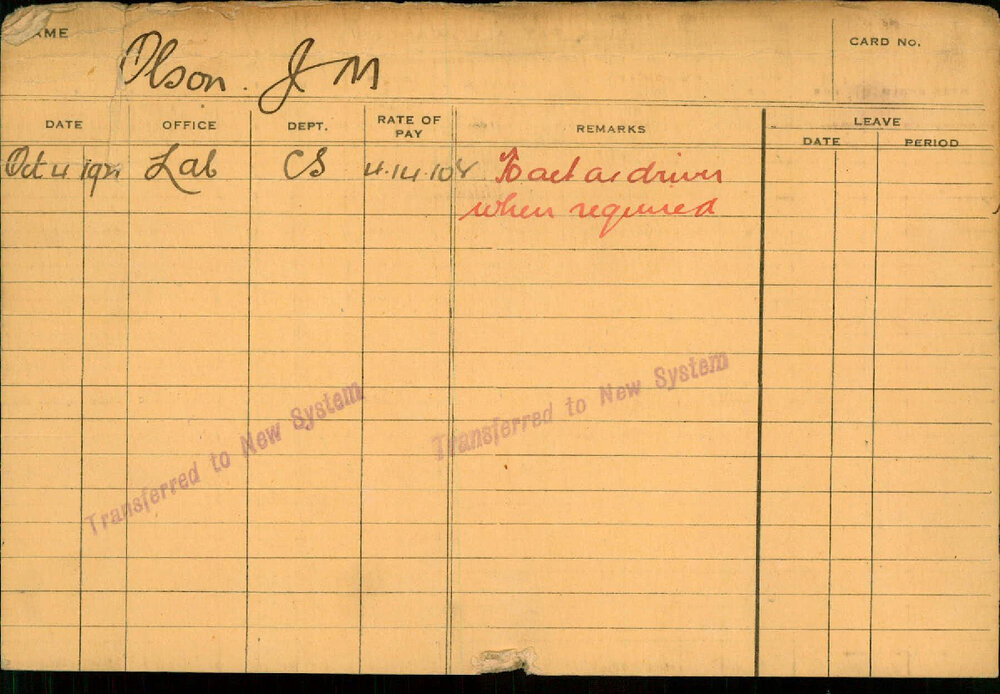 AME
Olson. J M
CARD No.
DATE OFFICE DEPT. RATE OF PAY REMARKS LEAVE
DATE PERIOD
Oct 4 Lab CS To act as driver
when required
Transferred to New System
Transferred to New System